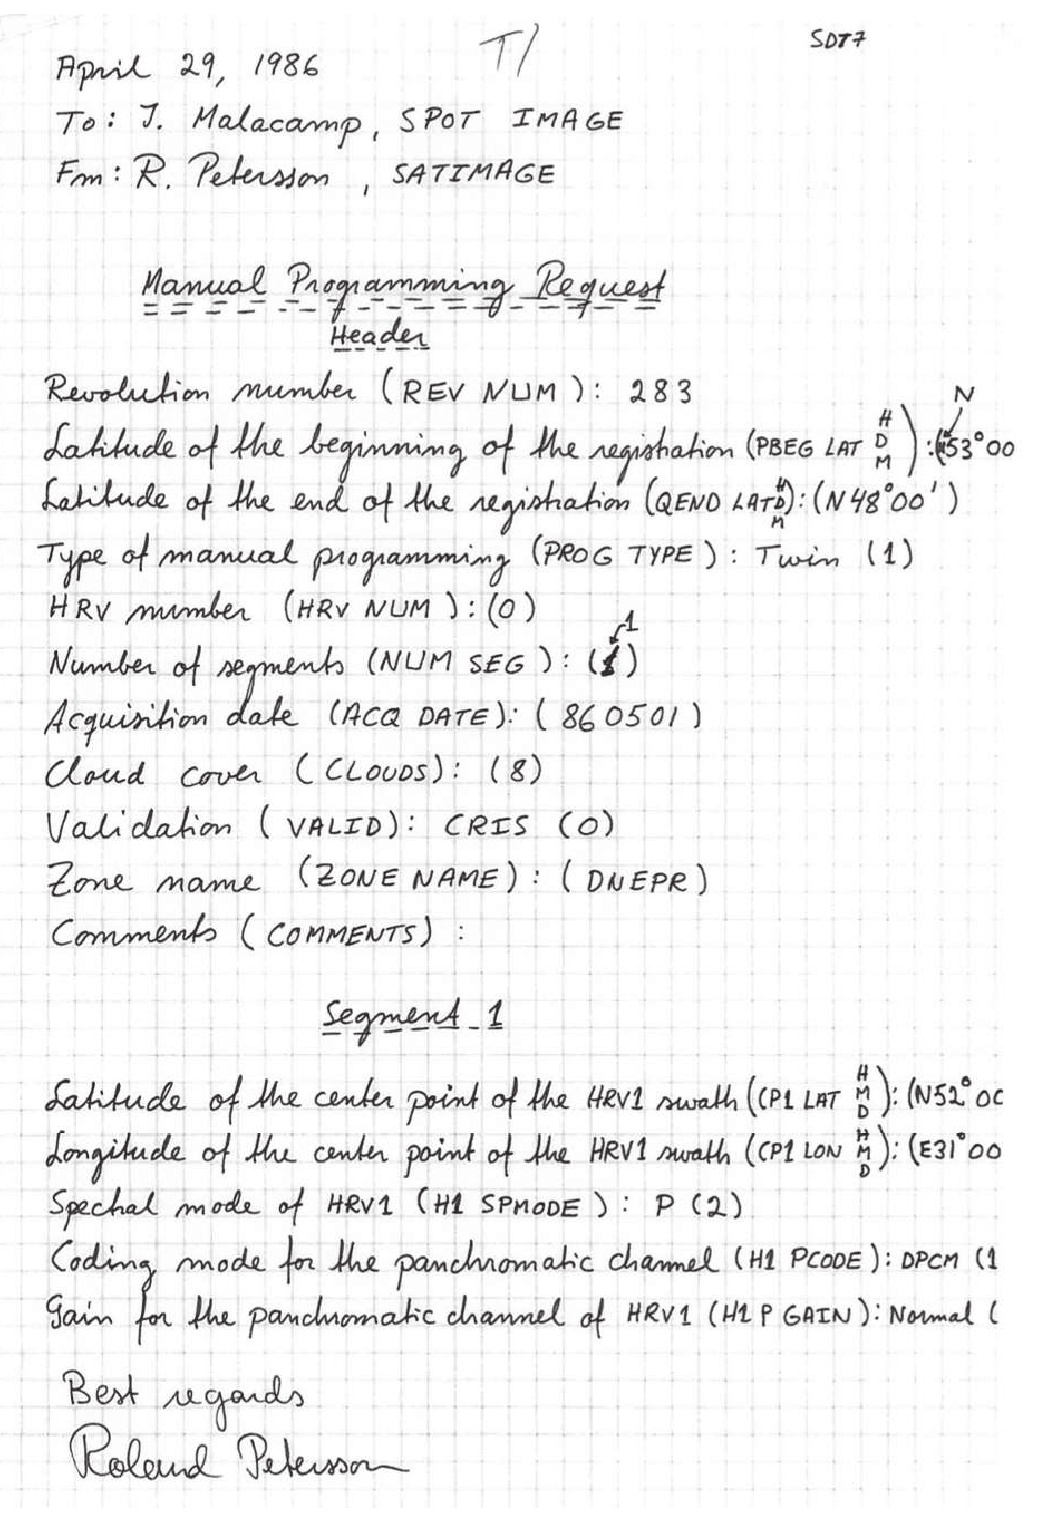 T/
SDT7
April 29, 1986
To: J. Malacamp, SPOT IMAGE
Fm: R. Petersson, SATIMAGE
Manual Programming Request
Header
Revolution number (REV NUM): 283
N
Latitude of the beginning of the registration (PBEG LAT H D M): (N53°00
Latitude of the end of the registration (QEND LAT H D M): (N48°00')
Type of manual programming (PROG TYPE): Twin (1)
HRV number (HRV NUM): (0)
1
Number of segments (NUM SEG): (1)
Acquisition date (ACQ DATE): (860501)
Cloud cover (CLOUDS): (8)
Validation (VALID): CRIS (0)
Zone name (ZONE NAME): (DNEPR)
Comments (COMMENTS):
Segment 1
Latitude of the center point of the HRV1 swath (CP1 LAT H M D): (N52°00
Longitude of the center point of the HRV1 swath (CP1 LON H M D): (E31°00
Spectral mode of HRV1 (H1 SPMODE): P (2)
Coding mode for the panchromatic channel (H1 PCODE): DPCM (1
Gain for the panchromatic channel of HRV1 (H1 P GAIN): Normal (
Best regards
Roland Petersson